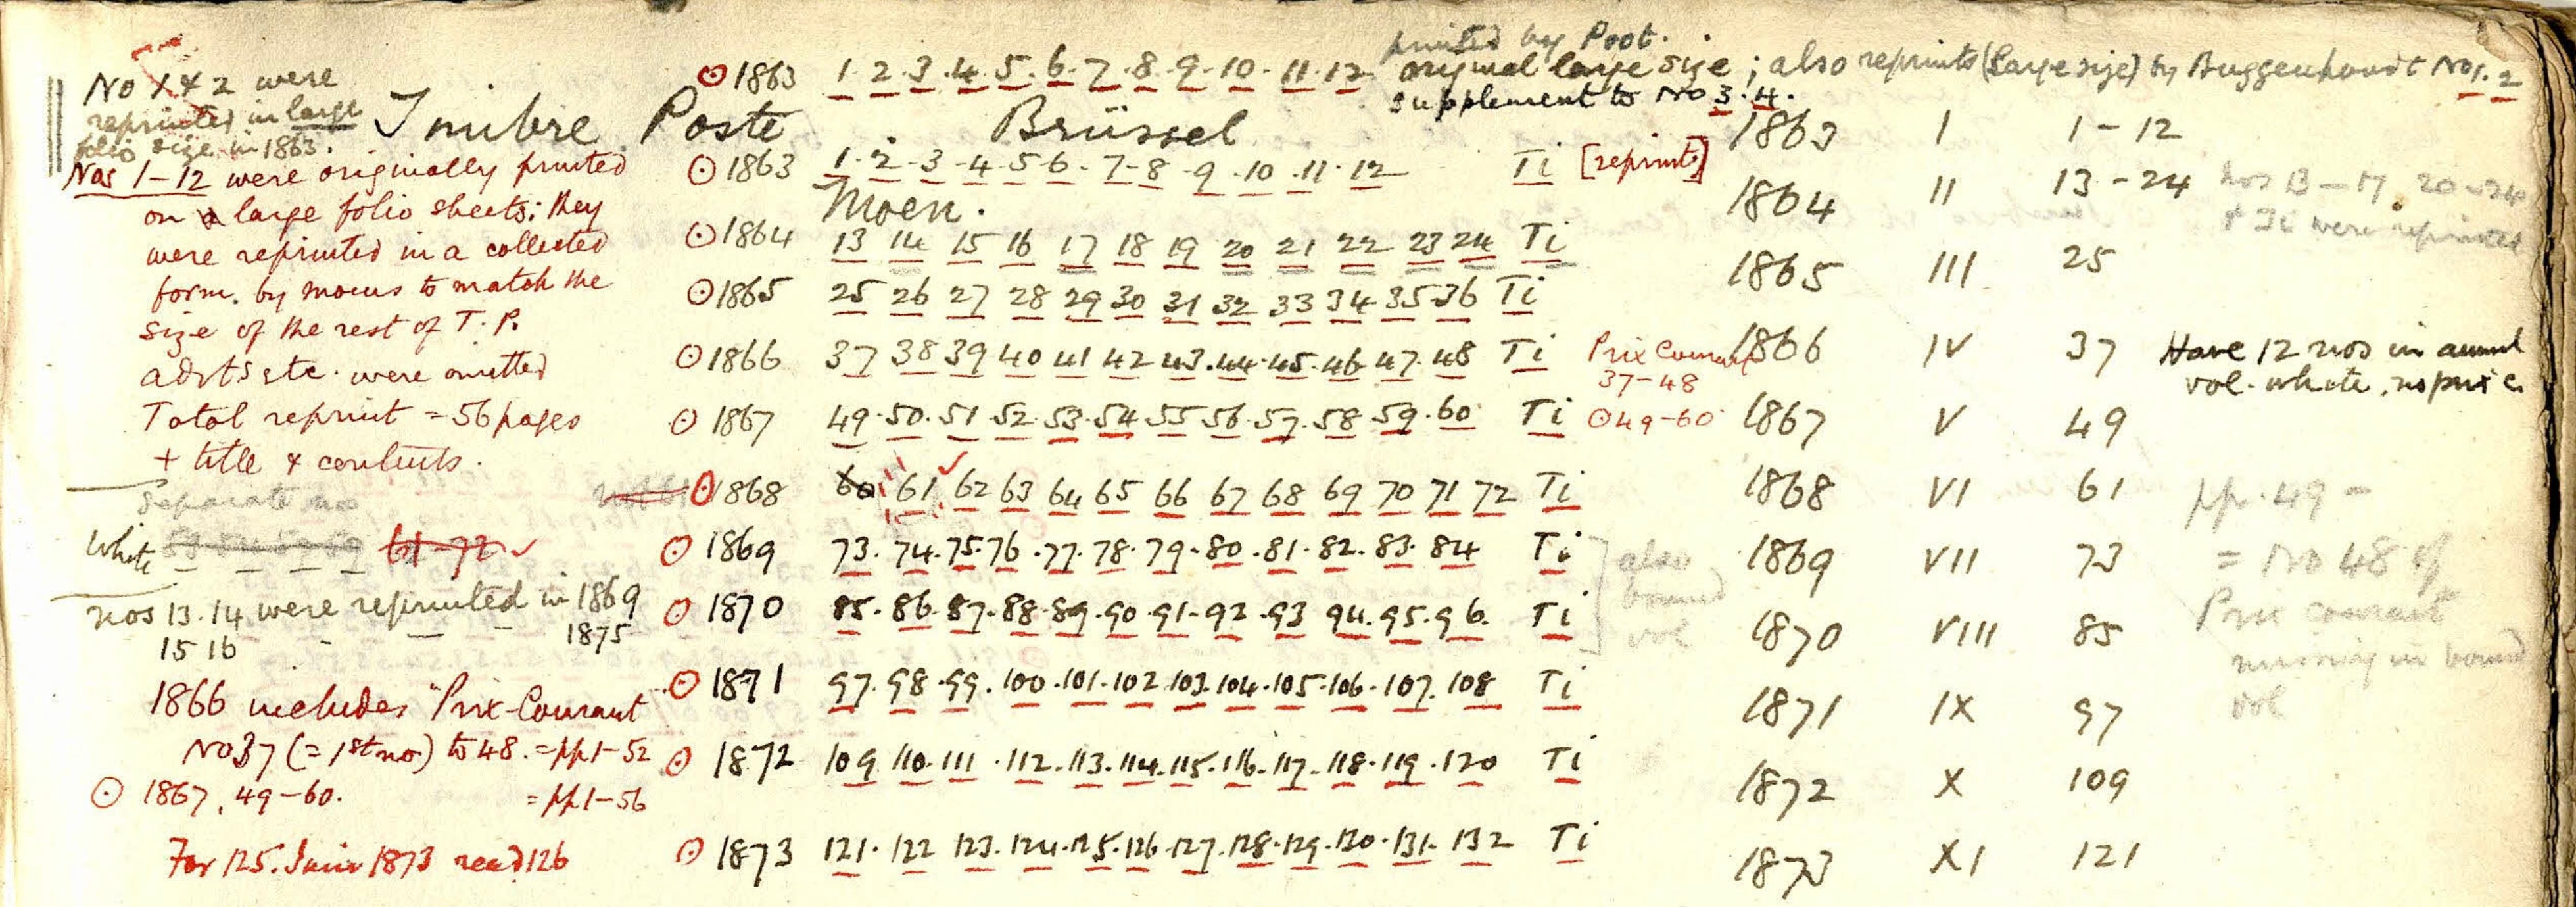 No 1 & 2 were
reprinted in large
folio size in 1863.
Nos 1-12 were originally printed
on large folio sheets; they
were reprinted in a collected
form. by Moens to match the
size of the rest of T. P.
advts etc. were omitted
Total reprint = 56 pages
+ title & contents.
separate no
White 61-72 ✓
Nos 13. 14 were reprinted in 1869
15 16 - - - 1875
1866 includes "Prix-Courant
No 37 (= 1st no) to 48. = pp 1-52
⊙ 1867, 49-60. = pp 1-56
For 125. Juin 1873 read 126
printed by Poot.
⊙ 1863 1. 2. 3. 4. 5. 6. 7. 8. 9. 10. 11. 12 original large size; also reprints (large size) by Buggenhoudt No 1. 2
supplement to No 3. 4.
Timbre Poste Brüssel
⊙ 1863 1. 2 - 3 - 4 - 5 - 6 - 7 - 8 - 9 - 10 - 11 - 12 Ti [reprints]
Moen.
⊙ 1864 13 14 15 16 17 18 19 20 21 22 23 24 Ti
⊙ 1865 25 26 27 28 29 30 31 32 33 34 35 36 Ti
⊙ 1866 37 38 39 40 41 42 43. 44. 45. 46. 47. 48 Ti Prix Courant
37-48
⊙ 1867 49. 50. 51. 52. 53. 54. 55 56. 57. 58. 59. 60 Ti ⊙ 49-60
⊙ 1868 60 61 ✓ 62 63 64 65 66 67 68 69 70 71 72 Ti
⊙ 1869 73. 74. 75. 76. 77. 78. 79. 80. 81. 82. 83. 84 Ti
⊙ 1870 85. 86. 87. 88. 89. 90. 91. 92. 93 94. 95. 96. Ti
also
bound
vol
⊙ 1871 97. 98. 99. 100. 101. 102. 103. 104. 105. 106. 107. 108 Ti
⊙ 1872 109 110. 111. 112. 113. 114. 115. 116. 117. 118. 119. 120 Ti
⊙ 1873 121. 122 123. 124. 125. 126. 127. 128. 129. 130. 131. 132 Ti
1863 I 1-12
1864 II 13-24
Nos 13-17. 20-24
were reprinted
1865 III 25
1866 IV 37 Have 12 nos in annual
vol. white. no prix c.
1867 V 49
1868 VI 61
1869 VII 73
1870 VIII 85
1871 IX 97
1872 X 109
1873 XI 121
pp. 49 -
= No 48 of
Prix courant
missing in bound
vol